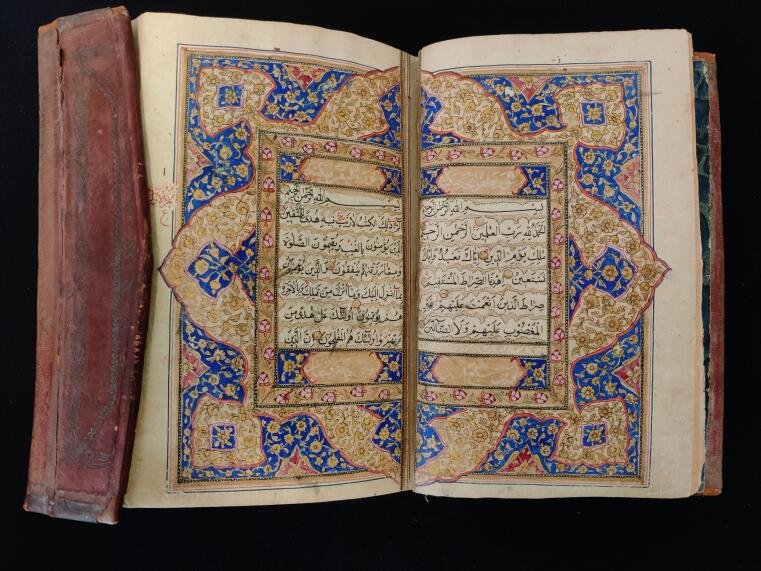 بسم الله الرحمن الرحيم
الحمد لله رب العلمين الرحمن الرحيم
ملك يوم الدين اياك نعبد واياك
نستعين اهدنا الصراط المستقيم
صراط الذين انعمت عليهم غير
المغضوب عليهم ولا الضالين
بسم الله الرحمن الرحيم
الم ذلك الكتب لا ريب فيه هدى للمتقين
الذين يؤمنون بالغيب ويقيمون الصلوة
ومما رزقنهم ينفقون والذين يؤمنون
بما انزل اليك وما انزل من قبلك وبالاخرة
هم يوقنون اولئك على هدى من
ربهم واولئك هم المفلحون ان الذين